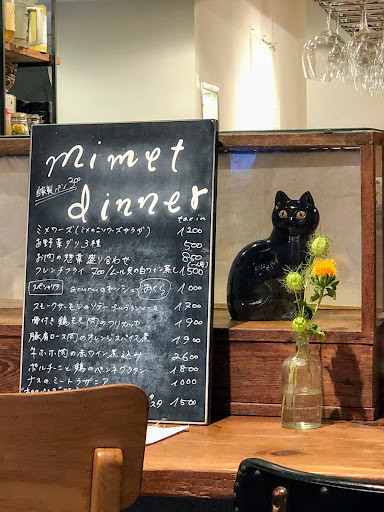 mimet
自家製パン 300
dinner
tax in
ミメワーズ(ミメのニソワーズサラダ) 1200
お野菜デリ3種 500
お肉の惣菜盛り合わせ 850
フレンチフライ 700/ムール貝の白ワイン蒸し 1500
スペシャリテ
1000
スモークサーモンのリヴァーブルグランソース 1300
骨付き鶏もも肉のフリカッセ 1900
豚肩ロース肉のオレンジスパイス煮 1900
牛ホホ肉の赤ワイン煮込み 2600
ポルチーニと鶏のペンネグラタン 1800
ナスのミートラザニア 1000
1500